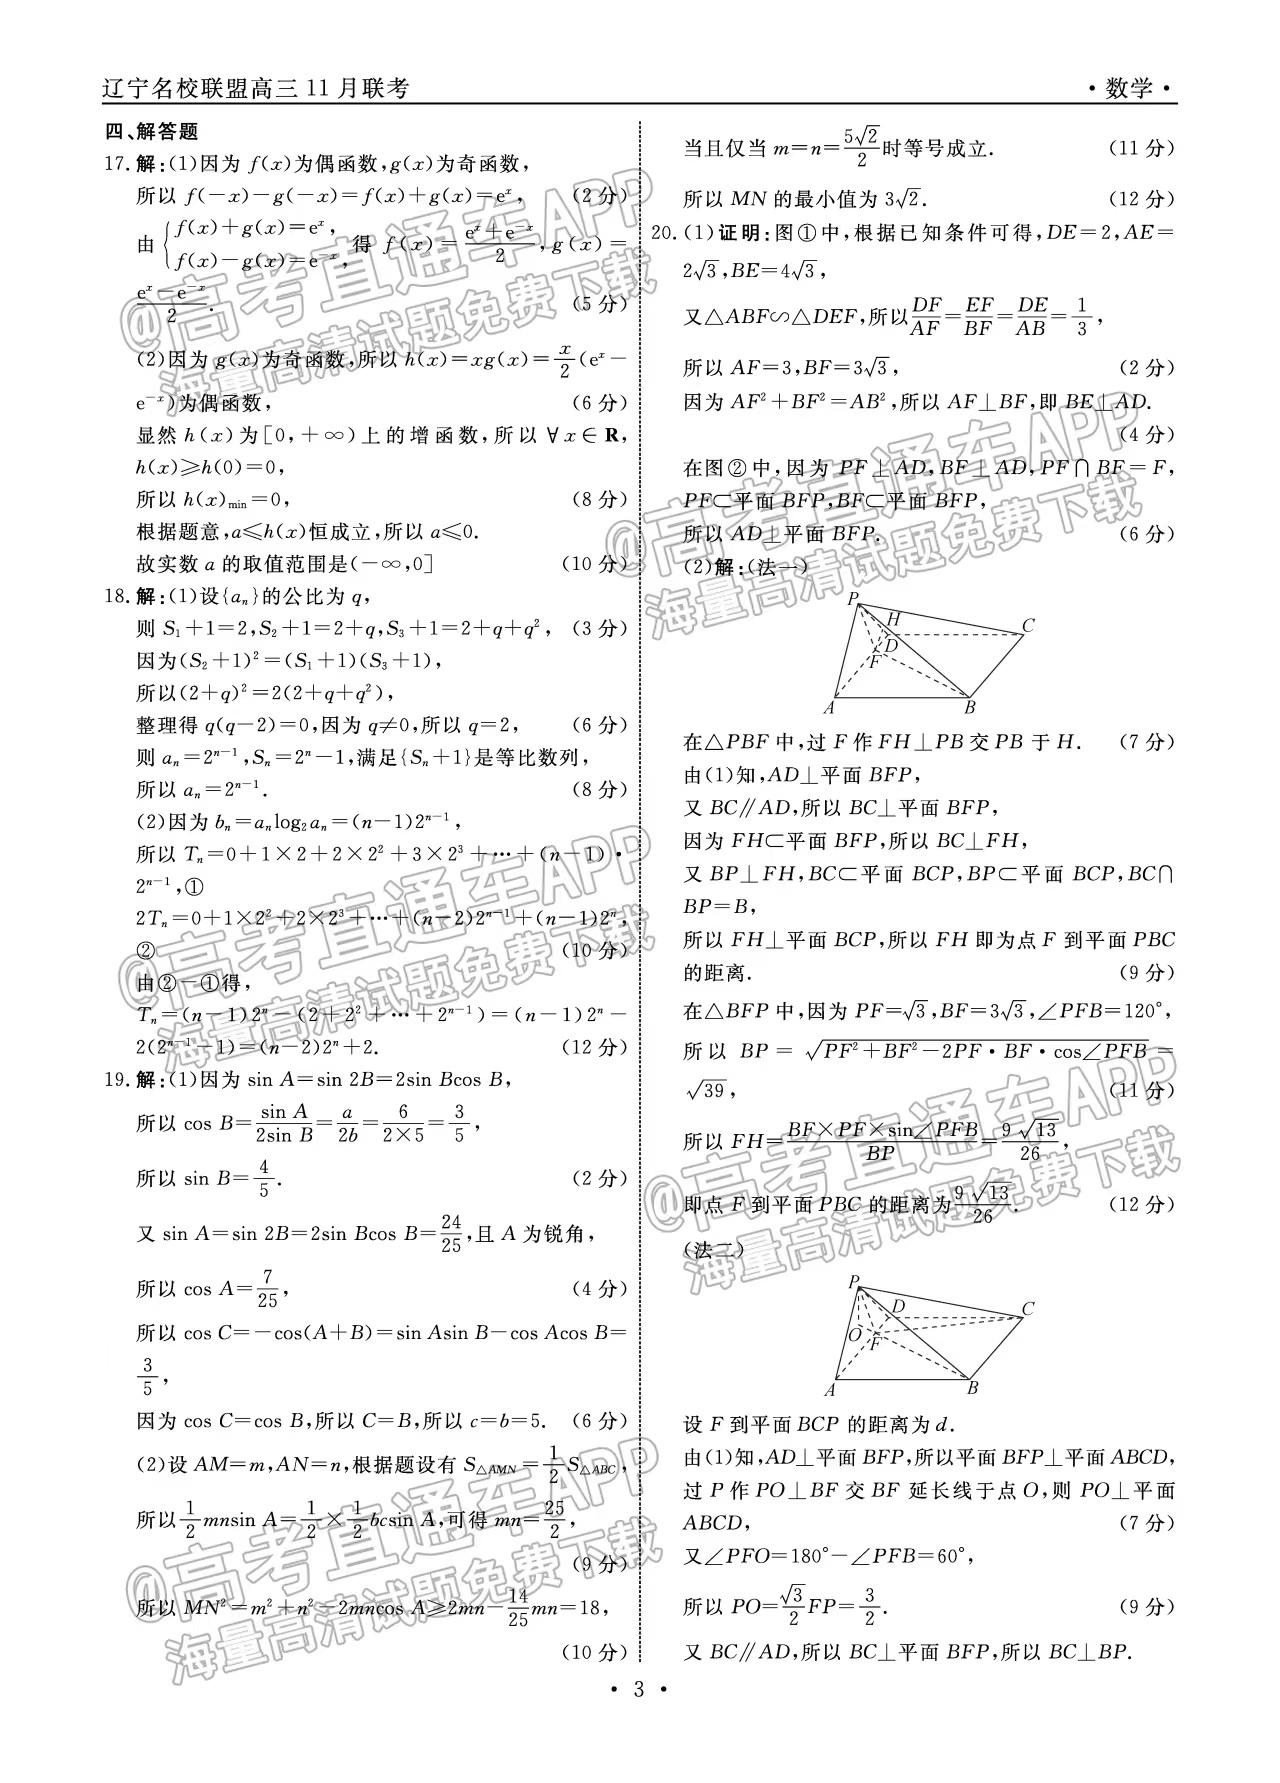 辽宁名校联盟高三 11 月联考
·数学·
四、解答题
17. 解:(1)因为 f(x)为偶函数,g(x)为奇函数,
所以 f(-x)-g(-x)=f(x)+g(x)=eˣ, (2 分)
由 { f(x)+g(x)=eˣ, f(x)-g(x)=e⁻ˣ, 得 f(x)=(eˣ+e⁻ˣ)/2, g(x)=
(eˣ-e⁻ˣ)/2. (5 分)
(2)因为 g(x)为奇函数,所以 h(x)=xg(x)=x/2(eˣ-
e⁻ˣ)为偶函数, (6 分)
显然 h(x)为[0,+∞)上的增函数,所以 ∀x∈R,
h(x)≥h(0)=0,
所以 h(x)min=0, (8 分)
根据题意,a≤h(x)恒成立,所以 a≤0.
故实数 a 的取值范围是(-∞,0] (10 分)
18. 解:(1)设{aₙ}的公比为 q,
则 S₁+1=2,S₂+1=2+q,S₃+1=2+q+q², (3 分)
因为(S₂+1)²=(S₁+1)(S₃+1),
所以(2+q)²=2(2+q+q²),
整理得 q(q-2)=0,因为 q≠0,所以 q=2, (6 分)
则 aₙ=2ⁿ⁻¹,Sₙ=2ⁿ-1,满足{Sₙ+1}是等比数列,
所以 aₙ=2ⁿ⁻¹. (8 分)
(2)因为 bₙ=aₙlog₂aₙ=(n-1)2ⁿ⁻¹,
所以 Tₙ=0+1×2+2×2²+3×2³+…+(n-1)·
2ⁿ⁻¹,①
2Tₙ=0+1×2²+2×2³+…+(n-2)2ⁿ⁻¹+(n-1)2ⁿ,
② (10 分)
由②-①得,
Tₙ=(n-1)2ⁿ-(2+2²+…+2ⁿ⁻¹)=(n-1)2ⁿ-
2(2ⁿ⁻¹-1)=(n-2)2ⁿ+2. (12 分)
19. 解:(1)因为 sin A=sin 2B=2sin Bcos B,
所以 cos B=sin A/2sin B=a/2b=6/(2×5)=3/5,
所以 sin B=4/5. (2 分)
又 sin A=sin 2B=2sin Bcos B=24/25,且 A 为锐角,
所以 cos A=7/25, (4 分)
所以 cos C=-cos(A+B)=sin Asin B-cos Acos B=
3/5,
因为 cos C=cos B,所以 C=B,所以 c=b=5. (6 分)
(2)设 AM=m,AN=n,根据题设有 S△AMN=1/2 S△ABC,
所以 1/2 mnsin A=1/2×1/2 bcsin A,可得 mn=25/2,
(9 分)
所以 MN²=m²+n²-2mncos A≥2mn-14/25 mn=18,
(10 分)
当且仅当 m=n=5√2/2 时等号成立. (11 分)
所以 MN 的最小值为 3√2. (12 分)
20. (1)证明:图①中,根据已知条件可得,DE=2,AE=
2√3,BE=4√3,
又△ABF∽△DEF,所以 DF/AF=EF/BF=DE/AB=1/3,
所以 AF=3,BF=3√3, (2 分)
因为 AF²+BF²=AB²,所以 AF⊥BF,即 BE⊥AD.
(4 分)
在图②中,因为 PF⊥AD,BF⊥AD,PF∩BF=F,
PF⊂平面 BFP,BF⊂平面 BFP,
所以 AD⊥平面 BFP. (6 分)
(2)解:(法一)
P
H
C
D
F
A
B
在△PBF 中,过 F 作 FH⊥PB 交 PB 于 H. (7 分)
由(1)知,AD⊥平面 BFP,
又 BC∥AD,所以 BC⊥平面 BFP,
因为 FH⊂平面 BFP,所以 BC⊥FH,
又 BP⊥FH,BC⊂平面 BCP,BP⊂平面 BCP,BC∩
BP=B,
所以 FH⊥平面 BCP,所以 FH 即为点 F 到平面 PBC
的距离. (9 分)
在△BFP 中,因为 PF=√3,BF=3√3,∠PFB=120°,
所以 BP=√(PF²+BF²-2PF·BF·cos∠PFB)=
√39, (11 分)
所以 FH=(BF×PF×sin∠PFB)/BP=9√13/26,
即点 F 到平面 PBC 的距离为 9√13/26. (12 分)
(法二)
P
D
C
O
F
A
B
设 F 到平面 BCP 的距离为 d.
由(1)知,AD⊥平面 BFP,所以平面 BFP⊥平面 ABCD,
过 P 作 PO⊥BF 交 BF 延长线于点 O,则 PO⊥平面
ABCD, (7 分)
又∠PFO=180°-∠PFB=60°,
所以 PO=√3/2 FP=3/2. (9 分)
又 BC∥AD,所以 BC⊥平面 BFP,所以 BC⊥BP.
· 3 ·
@高考直通车APP
海量高清试题免费下载
@高考直通车APP
海量高清试题免费下载
@高考直通车APP
海量高清试题免费下载
@高考直通车APP
海量高清试题免费下载
@高考直通车APP
海量高清试题免费下载